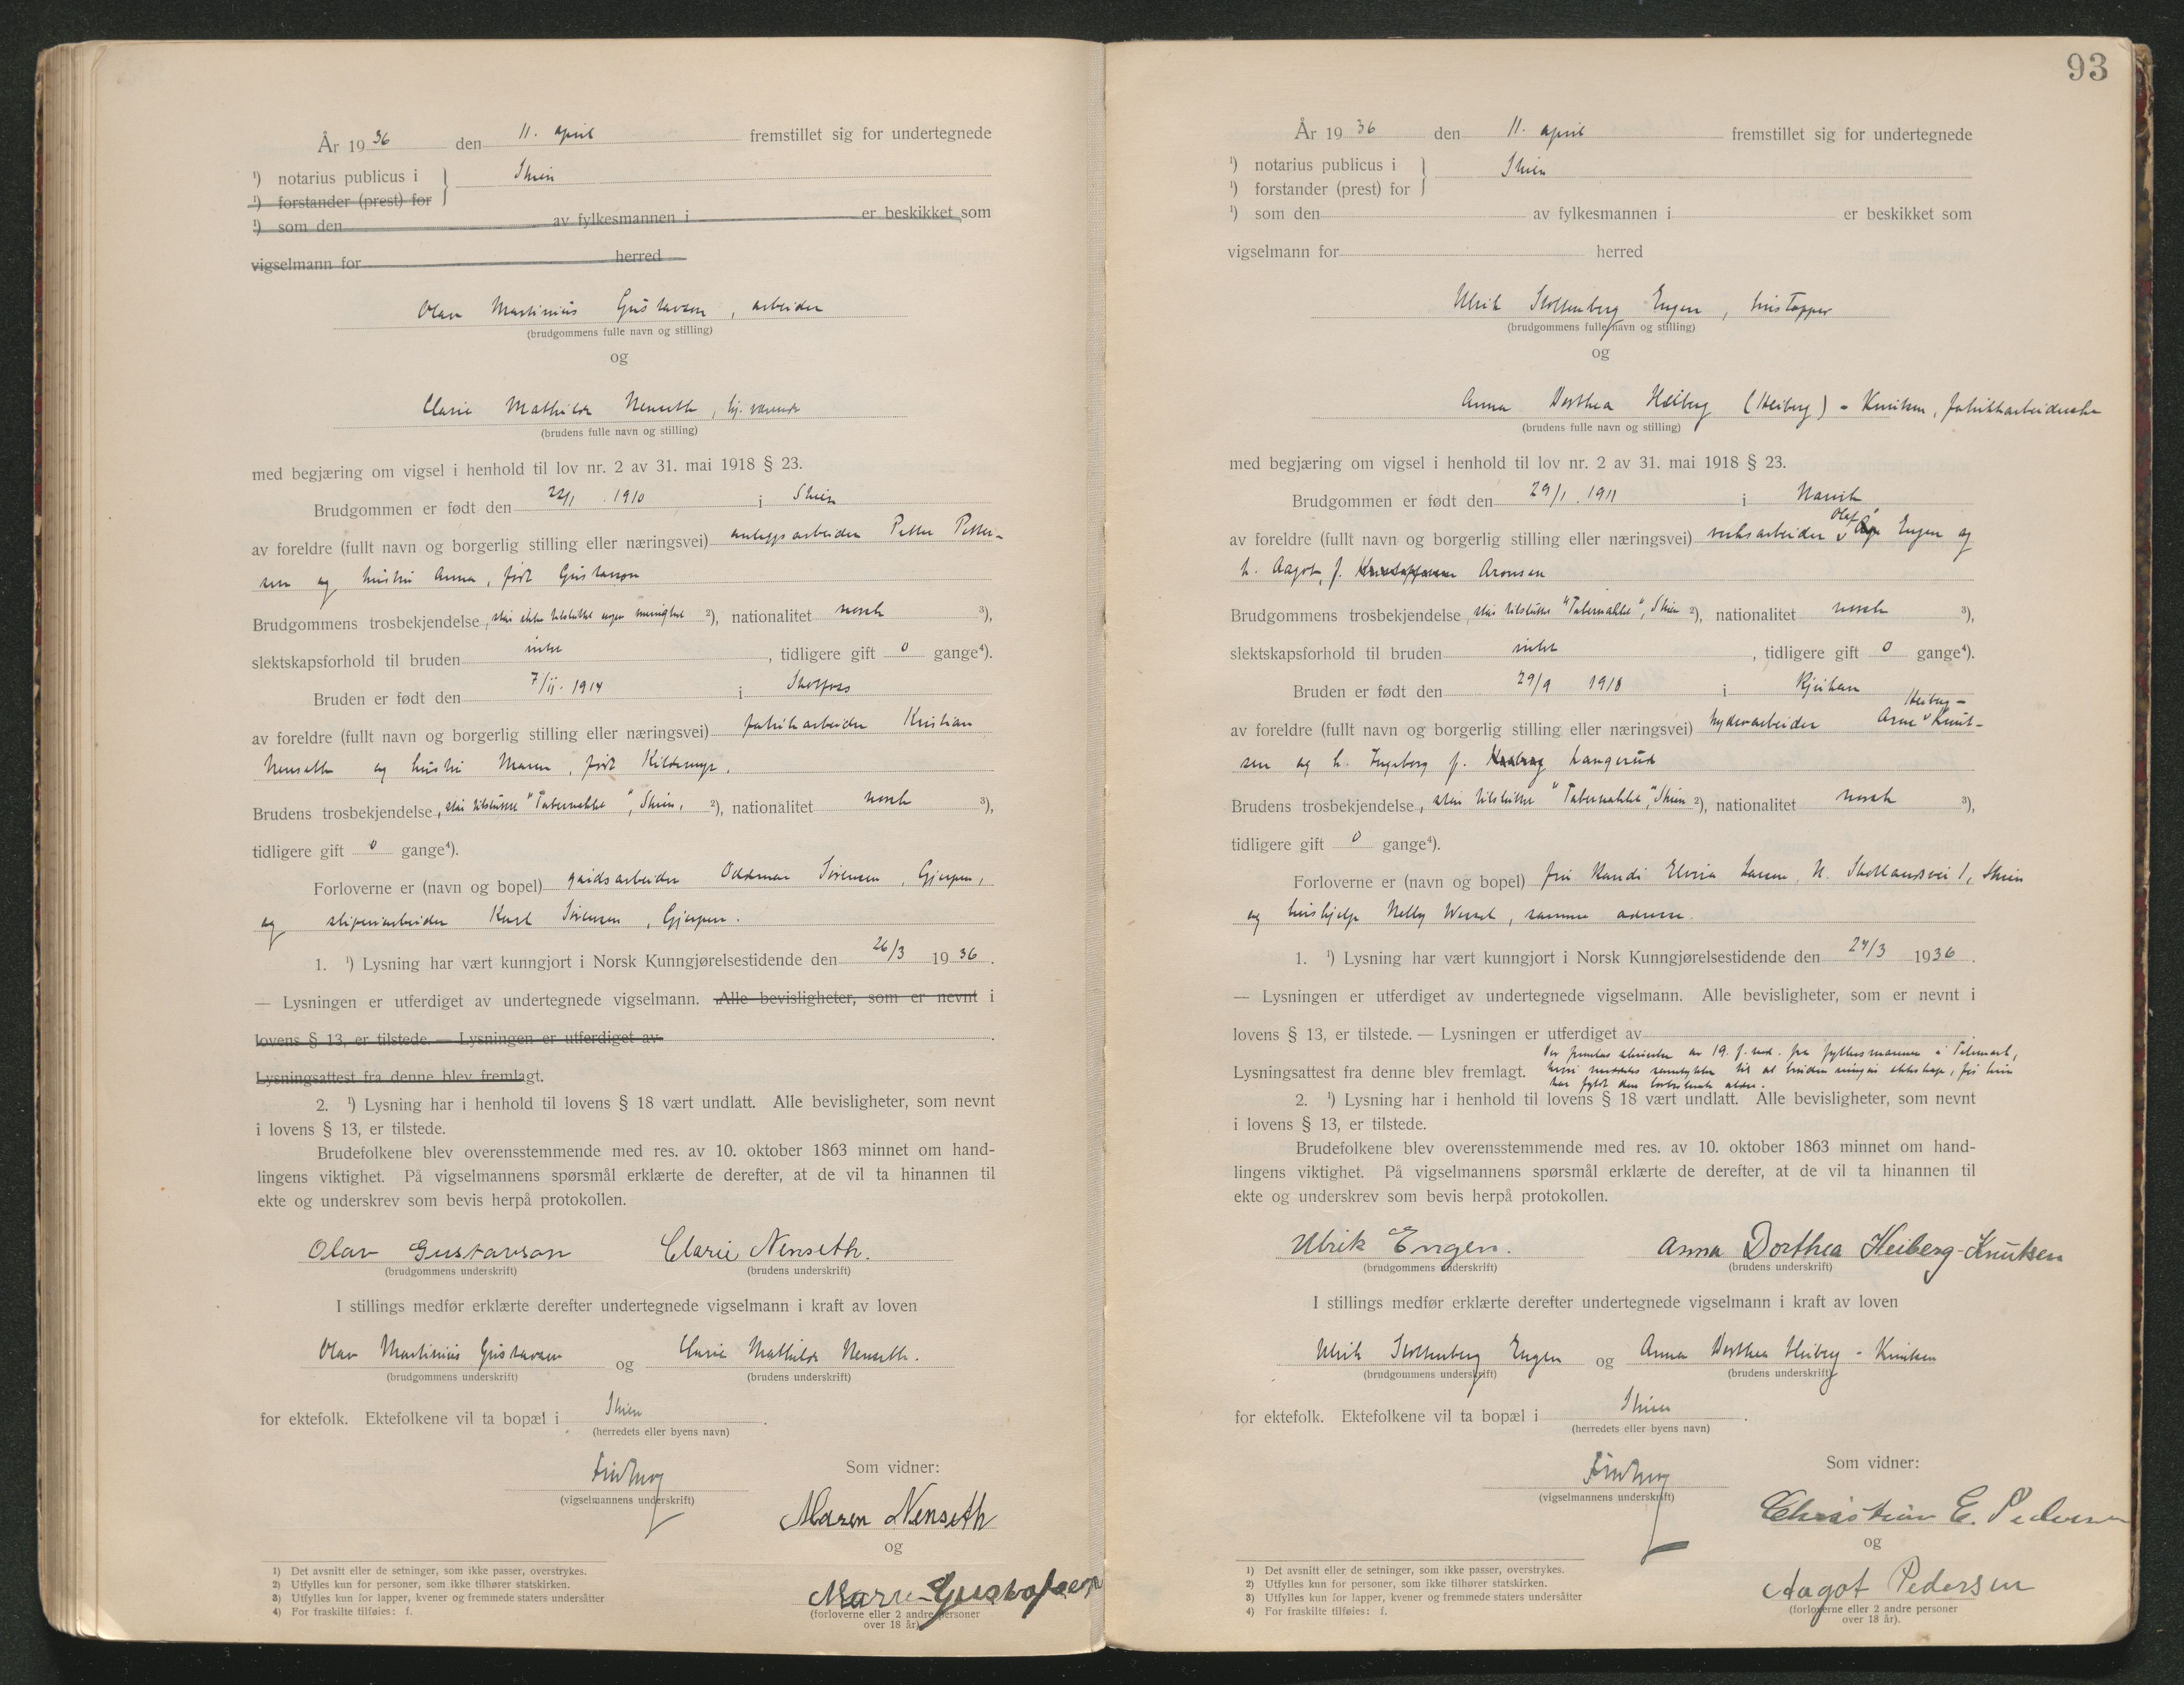 År 1936 den 11. april fremstillet sig for undertegnede
¹) notarius publicus i Skien
¹) forstander (prest) for
¹) som den av fylkesmannen i er beskikket som
vigselmann for herred
Olav Martinius Gustavson, arbeider
(brudgommens fulle navn og stilling)
og
Clarie Mathilde Nenseth, hj. værende
(brudens fulle navn og stilling)
med begjæring om vigsel i henhold til lov nr. 2 av 31. mai 1918 § 23.
Brudgommen er født den 22/1 1910 i Skien
av foreldre (fullt navn og borgerlig stilling eller næringsvei) anleggsarbeider Petter Petter-
sen og hustru Anna, født Gustavson
Brudgommens trosbekjendelse, står ikke tilsluttet nogen menighet ²), nationalitet norsk ³),
slektskapsforhold til bruden intet, tidligere gift 0 gange⁴).
Bruden er født den 7/11. 1914 i Skotfoss
av foreldre (fullt navn og borgerlig stilling eller næringsvei) fabrikarbeider Kristian
Nenseth og hustru Maren, født Kildemyr.
Brudens trosbekjendelse, står tilsluttet "Tabernaklet", Skien, ²), nationalitet norsk ³),
tidligere gift 0 gange⁴).
Forloverne er (navn og bopel) gårdsarbeider Oddmar Sørensen, Gjerpen,
og sliperiarbeider Karl Sørensen, Gjerpen.
1. ¹) Lysning har vært kunngjort i Norsk Kunngjørelsestidende den 26/3 1936.
— Lysningen er utferdiget av undertegnede vigselmann. Alle bevisligheter, som er nevnt i
lovens § 13, er tilstede. — Lysningen er utferdiget av.
Lysningsattest fra denne blev fremlagt.
2. ¹) Lysning har i henhold til lovens § 18 vært undlatt. Alle bevisligheter, som nevnt
i lovens § 13, er tilstede.
Brudefolkene blev overensstemmende med res. av 10. oktober 1863 minnet om hand-
lingens viktighet. På vigselmannens spørsmål erklærte de derefter, at de vil ta hinannen til
ekte og underskrev som bevis herpå protokollen.
Olav Gustavson Clarie Nenseth.
(brudgommens underskrift) (brudens underskrift)
I stillings medfør erklærte derefter undertegnede vigselmann i kraft av loven
Olav Martinius Gustavson og Clarie Mathilde Nenseth.
(brudgommens underskrift) (brudens underskrift)
for ektefolk. Ektefolkene vil ta bopæl i Skien.
(herredets eller byens navn)
Som vidner:
(vigselmannens underskrift)
Maren Nenseth
og
Marie Gustafsen
(forloverne eller 2 andre personer
over 18 år).
1) Det avsnitt eller de setninger, som ikke passer, overstrykes.
2) Utfylles kun for personer, som ikke tilhører statskirken.
3) Utfylles kun for lapper, kvener og fremmede staters undersåtter
4) For fraskilte tilføies: f.
93
År 1936 den 11. april fremstillet sig for undertegnede
¹) notarius publicus i Skien
¹) forstander (prest) for
¹) som den av fylkesmannen i er beskikket som
vigselmann for herred
Ulrik Stoltenberg Engen,
(brudgommens fulle navn og stilling)
og
Anna Dorthea Heiberg (Heiberg) - Knutsen, fabrikkarbeiderske
(brudens fulle navn og stilling)
med begjæring om vigsel i henhold til lov nr. 2 av 31. mai 1918 § 23.
Brudgommen er født den 29/1. 1911 i Narvik
av foreldre (fullt navn og borgerlig stilling eller næringsvei) verksarbeider Olaf Engen og
h. Aagot, f. Kristoffersen Aronsen
Brudgommens trosbekjendelse, står tilsluttet "Tabernaklet", Skien ²), nationalitet norsk ³),
slektskapsforhold til bruden intet, tidligere gift 0 gange⁴).
Bruden er født den 29/9 1918 i Rjukan
av foreldre (fullt navn og borgerlig stilling eller næringsvei) hydroarbeider Arne Heiberg-Knut-
sen og h. Ingeborg f. Langerud
Brudens trosbekjendelse, står tilsluttet "Tabernaklet", Skien ²), nationalitet norsk ³),
tidligere gift 0 gange⁴).
Forloverne er (navn og bopel) fru Randi Elvira Larsen, N. Skotlandsvei 1, Skien
og hushjelp Nelly Wersel, samme adresse.
1. ¹) Lysning har vært kunngjort i Norsk Kunngjørelsestidende den 24/3 1936.
— Lysningen er utferdiget av undertegnede vigselmann. Alle bevisligheter, som er nevnt i
lovens § 13, er tilstede. — Lysningen er utferdiget av.
Der fremlas skrivelse av 19. f. md. fra fylkesmannen i Telemark,
Lysningsattest fra denne blev fremlagt. hvori meddeles samtykke til at bruden inngår ekteskap, før hun
har fylt den lovbestemte alder.
2. ¹) Lysning har i henhold til lovens § 18 vært undlatt. Alle bevisligheter, som nevnt
i lovens § 13, er tilstede.
Brudefolkene blev overensstemmende med res. av 10. oktober 1863 minnet om hand-
lingens viktighet. På vigselmannens spørsmål erklærte de derefter, at de vil ta hinannen til
ekte og underskrev som bevis herpå protokollen.
Ulrik Engen. Anna Dorthea Heiberg-Knutsen
(brudgommens underskrift) (brudens underskrift)
I stillings medfør erklærte derefter undertegnede vigselmann i kraft av loven
Ulrik Stoltenberg Engen og Anna Dorthea Heiberg - Knutsen
(brudgommens underskrift) (brudens underskrift)
for ektefolk. Ektefolkene vil ta bopæl i Skien.
(herredets eller byens navn)
Som vidner:
(vigselmannens underskrift)
Christian E. Pedersen
og
Aagot Pedersen
(forloverne eller 2 andre personer
over 18 år).
1) Det avsnitt eller de setninger, som ikke passer, overstrykes.
2) Utfylles kun for personer, som ikke tilhører statskirken.
3) Utfylles kun for lapper, kvener og fremmede staters undersåtter
4) For fraskilte tilføies: f.